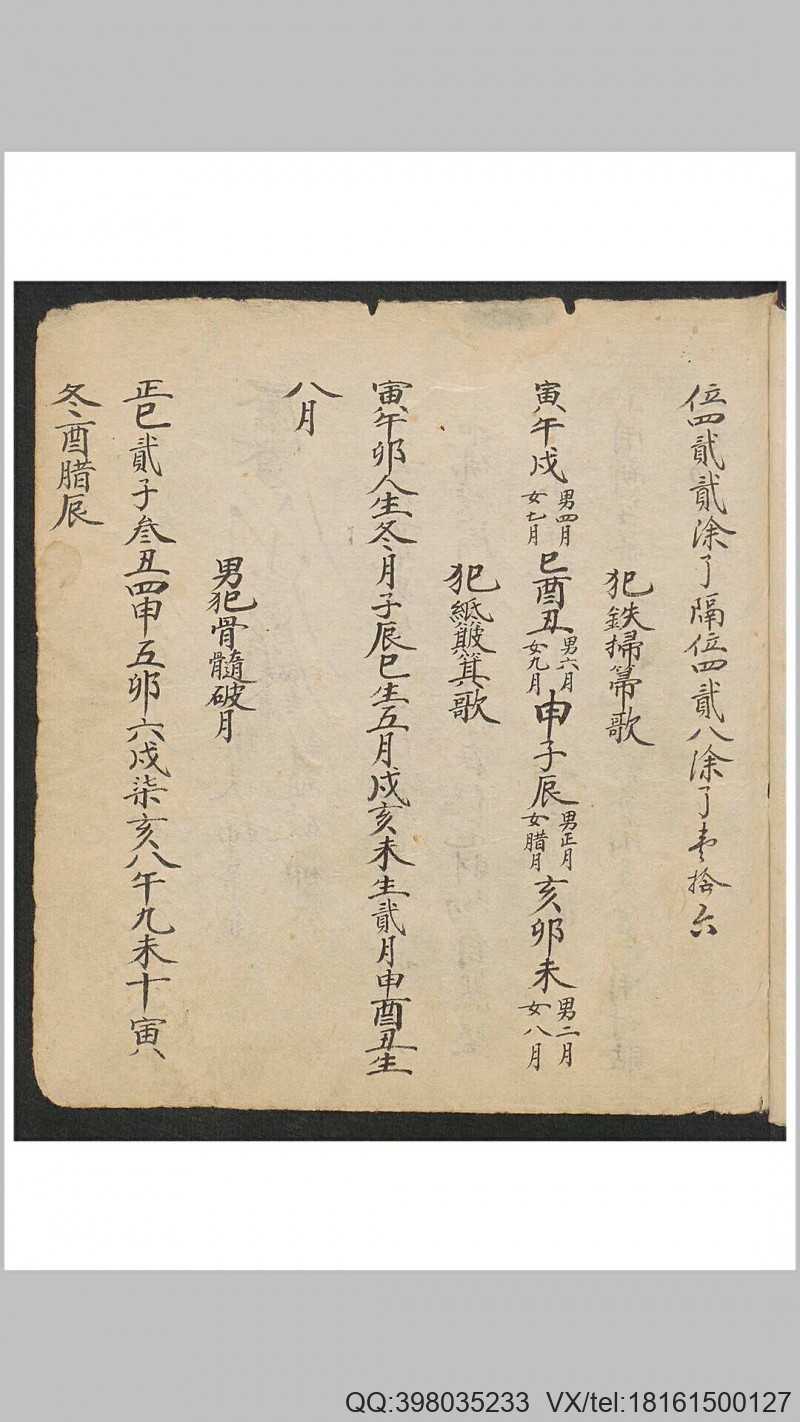 位四貳貳涂了隔位四貳八涂了壹捨六
犯鉄掃箒歌
寅午戍男四月女七月巳酉丑男六月女九月申子辰男正月女腊月亥卯未男二月女八月
犯紙簸箕歌
寅午卯人生冬月子辰巳生五月戍亥未生貳月申酉丑生
八月
男犯骨髓破月
正巳貳子叁丑四申五卯六戍柒亥八午九未十寅
冬酉腊辰
QQ:398035233 VX/tel:18161500127